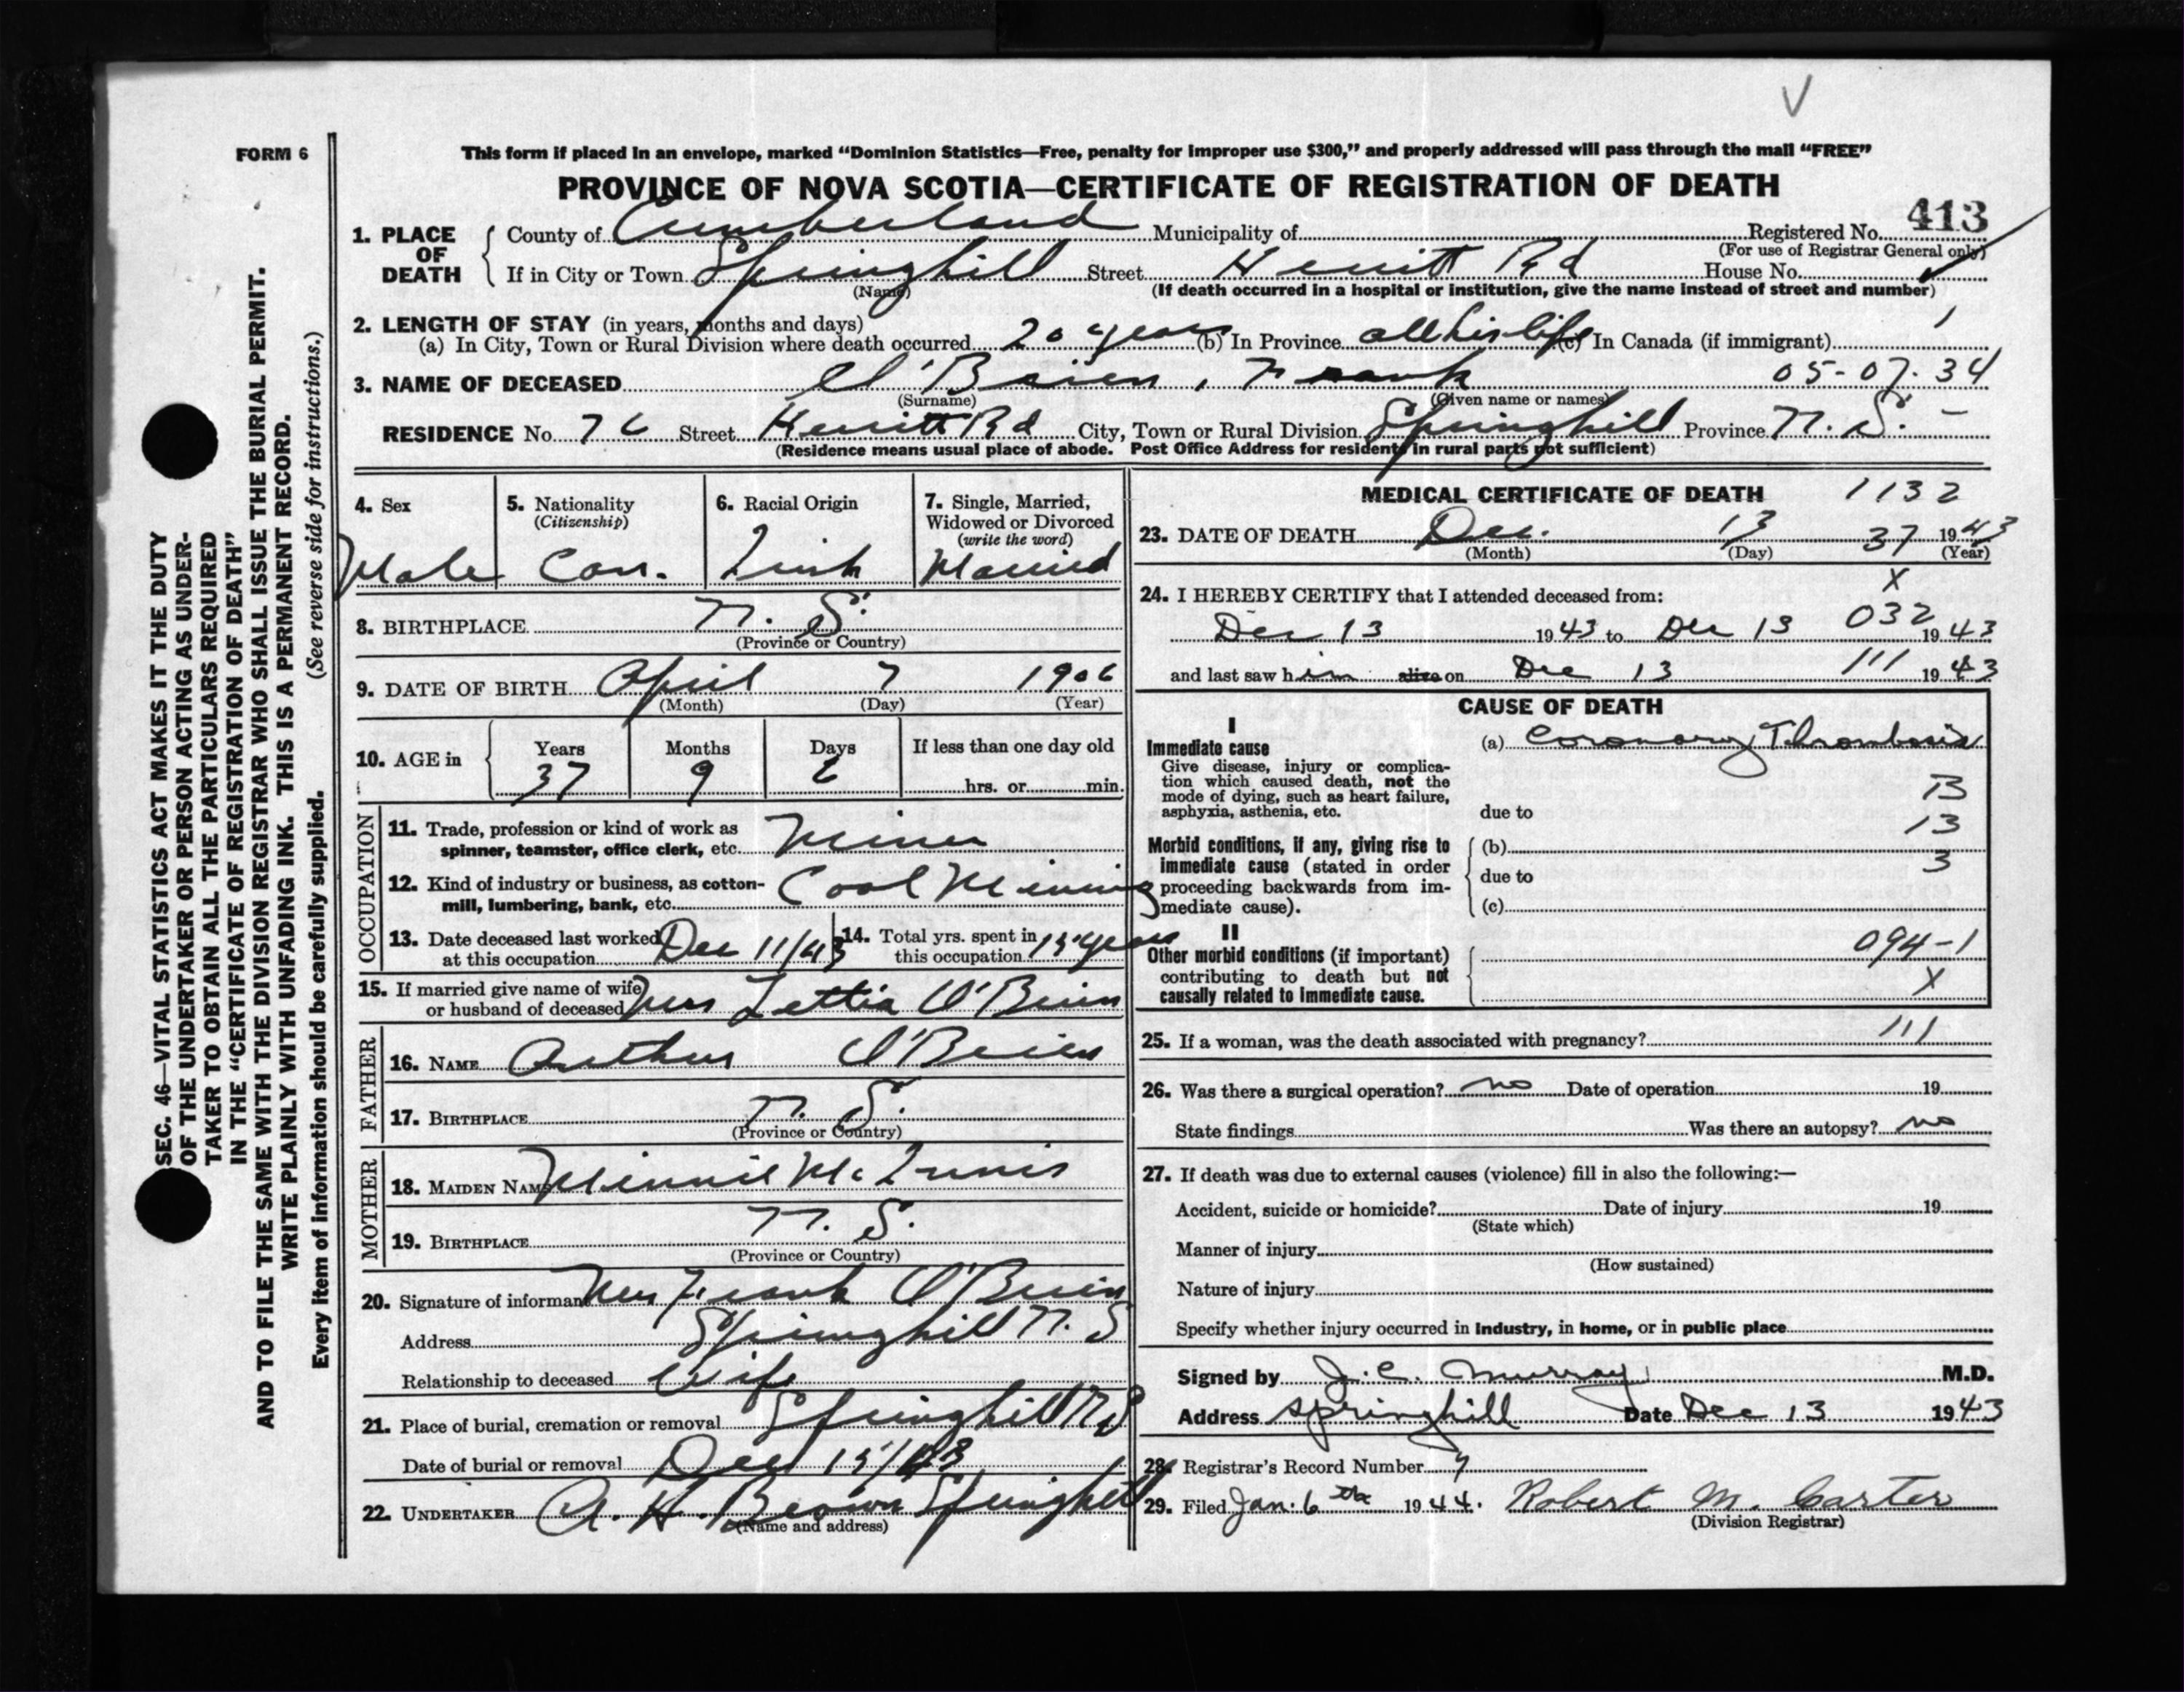 V
FORM 6
This form if placed in an envelope, marked “Dominion Statistics—Free, penalty for improper use $300,” and properly addressed will pass through the mail “FREE”
PROVINCE OF NOVA SCOTIA—CERTIFICATE OF REGISTRATION OF DEATH
413
1. PLACE OF DEATH { County of Cumberland Municipality of Registered No.
(For use of Registrar General only)
If in City or Town Springhill Street Herritt Rd House No.
(Name) (If death occurred in a hospital or institution, give the name instead of street and number)
2. LENGTH OF STAY (in years, months and days)
(a) In City, Town or Rural Division where death occurred 20 years (b) In Province all his life (c) In Canada (if immigrant)
3. NAME OF DECEASED O'Brien, Frank 05-07-34
(Surname) (Given name or names)
RESIDENCE No. 76 Street Herritt Rd City, Town or Rural Division Springhill Province N. S. -
(Residence means usual place of abode. Post Office Address for residents in rural parts not sufficient)
4. Sex 5. Nationality 6. Racial Origin 7. Single, Married,
(Citizenship) Widowed or Divorced
(write the word)
Male Can. Irish Married
8. BIRTHPLACE N. S.
(Province or Country)
9. DATE OF BIRTH April 7 1906
(Month) (Day) (Year)
10. AGE in { Years Months Days If less than one day old
37 9 hrs. or min.
OCCUPATION
11. Trade, profession or kind of work as
spinner, teamster, office clerk, etc. Miner
12. Kind of industry or business, as cotton-
mill, lumbering, bank, etc. Coal Mining
13. Date deceased last worked
at this occupation Dec 11/43
14. Total yrs. spent in
this occupation 15 years
15. If married give name of wife
or husband of deceased Mrs Lettia O'Brien
FATHER
16. NAME Arthur O'Brien
17. BIRTHPLACE N. S.
(Province or Country)
MOTHER
18. MAIDEN NAME Minnie McInnis
19. BIRTHPLACE N. S.
(Province or Country)
20. Signature of informant Mrs Frank O'Brien
Address Springhill N. S
Relationship to deceased Wife
21. Place of burial, cremation or removal Springhill N S
Date of burial or removal Dec 15/43
22. UNDERTAKER A. H. Brown Springhill
(Name and address)
MEDICAL CERTIFICATE OF DEATH 1132
23. DATE OF DEATH Dec. 13 37 1943
(Month) (Day) (Year)
X
24. I HEREBY CERTIFY that I attended deceased from:
032
Dec 13 1943 to Dec 13 1943
and last saw him alive on Dec 13 111 1943
CAUSE OF DEATH
I
Immediate cause
Give disease, injury or complica-
tion which caused death, not the
mode of dying, such as heart failure,
asphyxia, asthenia, etc.
(a) Coronary Thrombosis
due to
13
Morbid conditions, if any, giving rise to
immediate cause (stated in order
proceeding backwards from im-
mediate cause).
(b)
3
due to
(c)
II
Other morbid conditions (if important)
contributing to death but not
causally related to immediate cause.
094-1
X
25. If a woman, was the death associated with pregnancy? 111
26. Was there a surgical operation? no Date of operation 19
State findings Was there an autopsy? no
27. If death was due to external causes (violence) fill in also the following:—
Accident, suicide or homicide? Date of injury 19
(State which)
Manner of injury
(How sustained)
Nature of injury
Specify whether injury occurred in industry, in home, or in public place
Signed by J. C. Murray M.D.
Address Springhill Date Dec 13 1943
28. Registrar's Record Number 7
29. Filed Jan. 6th 1944. Robert M. Carter
(Division Registrar)
SEC. 46—VITAL STATISTICS ACT MAKES IT THE DUTY
OF THE UNDERTAKER OR PERSON ACTING AS UNDER-
TAKER TO OBTAIN ALL THE PARTICULARS REQUIRED
IN THE “CERTIFICATE OF REGISTRATION OF DEATH”
AND TO FILE THE SAME WITH THE DIVISION REGISTRAR WHO SHALL ISSUE THE BURIAL PERMIT.
WRITE PLAINLY WITH UNFADING INK. THIS IS A PERMANENT RECORD.
Every item of information should be carefully supplied. (See reverse side for instructions.)